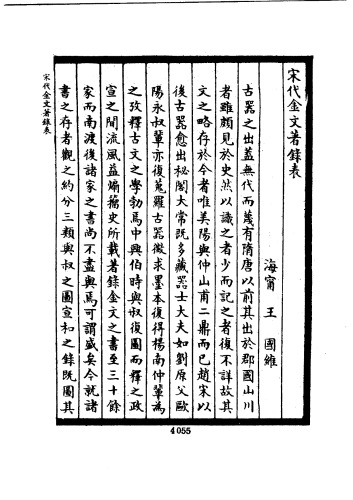 宋代金文著錄表
海甯 王 國維
古器之出蓋無代而蔑有隋唐以前其出於郡國山川
者雖頗見於史然以識之者少而記之者復不詳故其
文之略存於今者唯美陽與仲山甫二鼎而已趙宋以
後古器愈出祕閣大常既多藏器士大夫如劉原父歐
陽永叔輩亦復蒐羅古器徵求墨本復得楊南仲輩為
之攷釋古文之學勃焉中興伯時與叔復圖而釋之政
宣之間流風益煽籀史所載著錄金文之書至三十餘
家而南渡後諸家之書尚不盡與焉可謂盛矣今就諸
書之存者觀之約分三類與叔之圖宣和之錄既圖其
宋代金文著錄表
4055